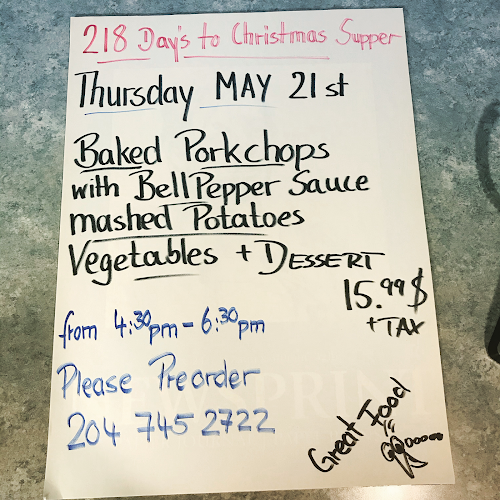 218 Day's to Christmas Supper
Thursday MAY 21st
Baked Porkchops
with Bell Pepper Sauce
mashed Potatoes
Vegetables + DESSERT
15.99 $
+ TAX
from 4:30pm - 6:30pm
Please Preorder
204 745 2722
Great Food